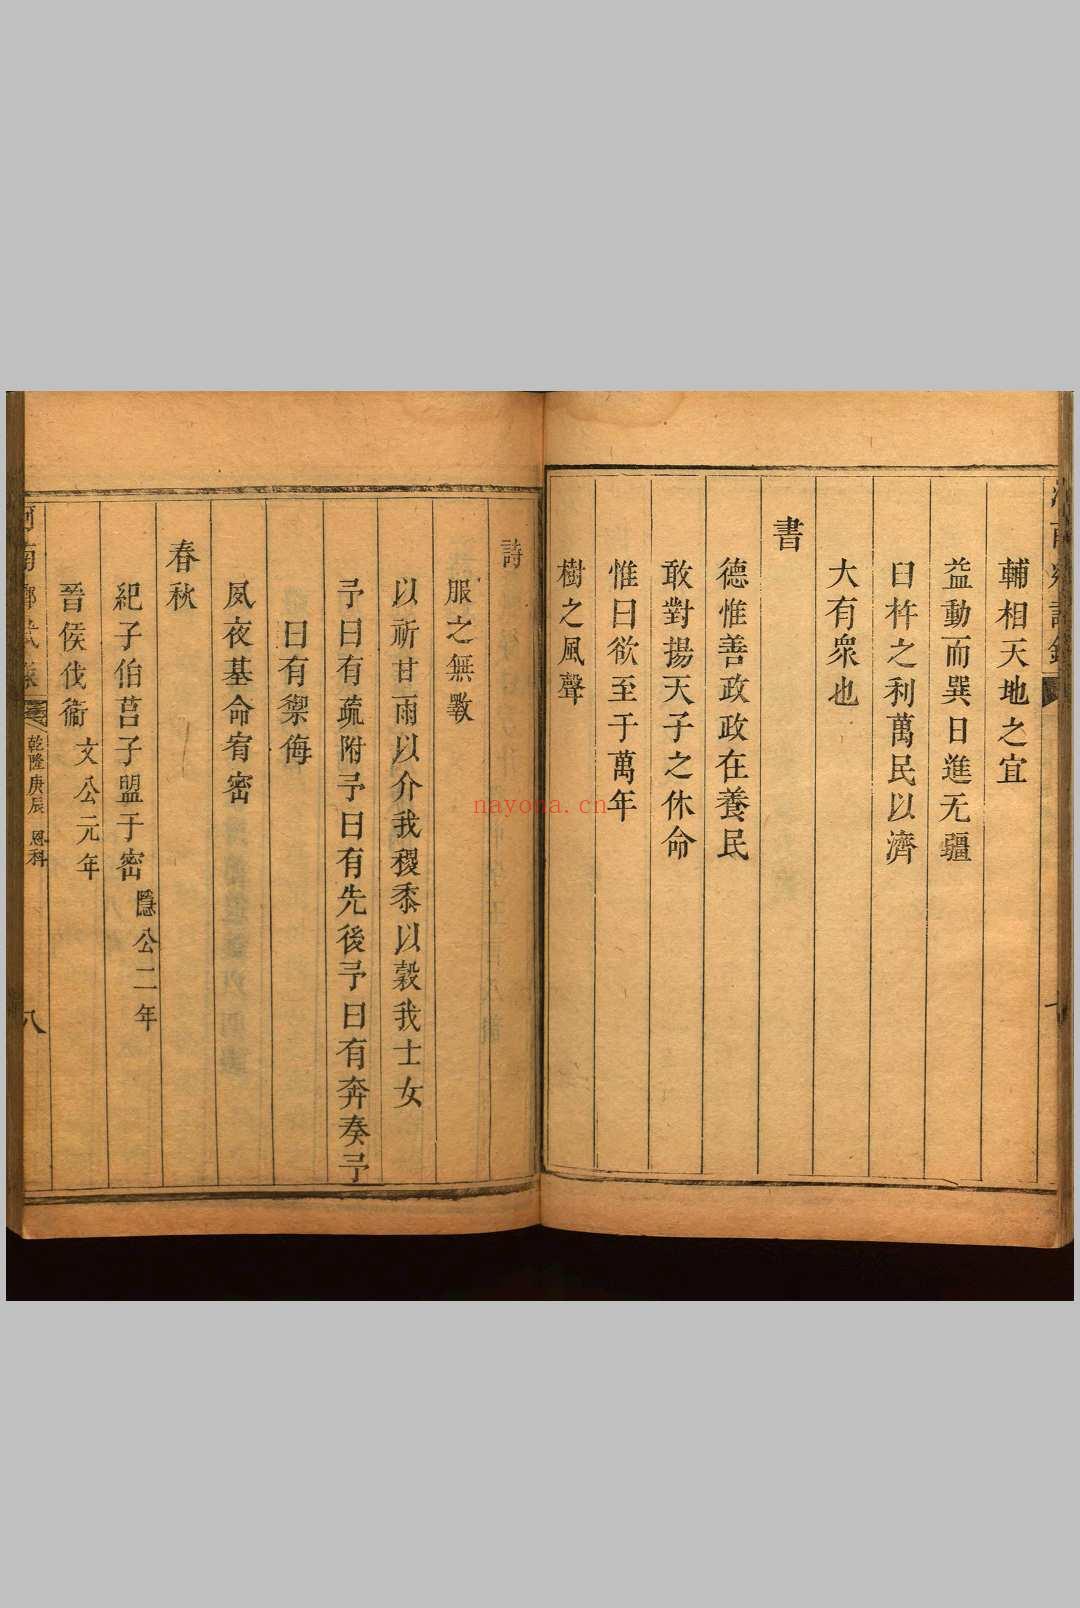 輔相天地之宜
益動而巽日進无疆
臼杵之利萬民以濟
大有衆也
書
德惟善政政在養民
敢對揚天子之休命
惟曰欲至于萬年
樹之風聲
詩
服之無斁
以祈甘雨以介我稷黍以穀我士女
予曰有疏附予曰有先後予曰有奔奏予
曰有禦侮
夙夜基命宥密
春秋
紀子伯莒子盟于密 隱公二年
晉侯伐衞 文公元年
河南鄉試錄 乾隆庚辰 恩科 八
nayona.cn